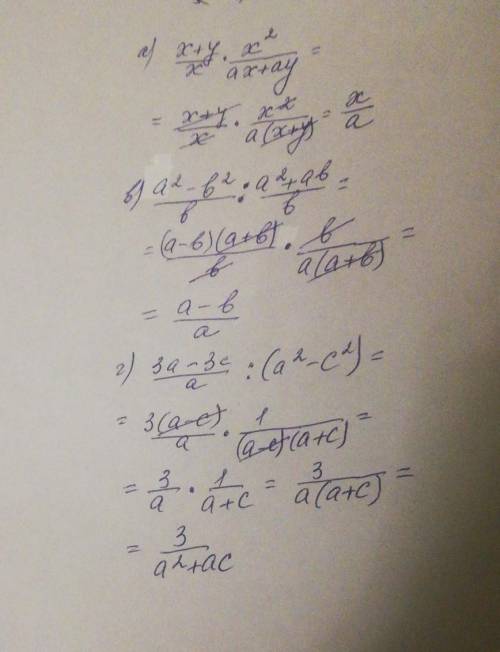 а) (x+y)/x · x²/(ax+ay) =
= (x+y)/x · x²/(a(x+y)) = x/a
в) (a²-в²)/в : (a²+aв)/в =
= (a-в)(a+в)/в · в/(a(a+в)) =
= (a-в)/a
г) (3a-3c)/a : (a²-c²) =
= 3(a-c)/a · 1/((a-c)(a+c)) =
= 3/a · 1/(a+c) = 3/(a(a+c)) =
= 3/(a²+ac)